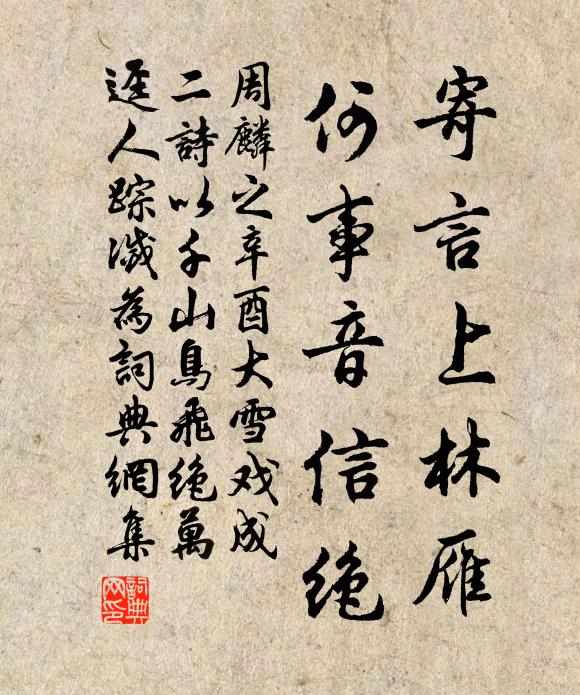 寄言上林雁
何事音信絶
周麟之辛酉大雪戏成
二詩以千山鳥飛绝萬
逕人踪滅為詞典網集
詞典网印